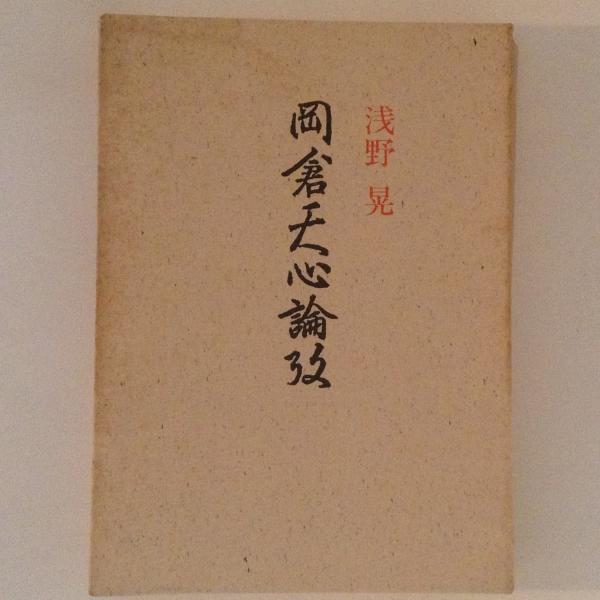 浅野 晃
岡倉天心論攷